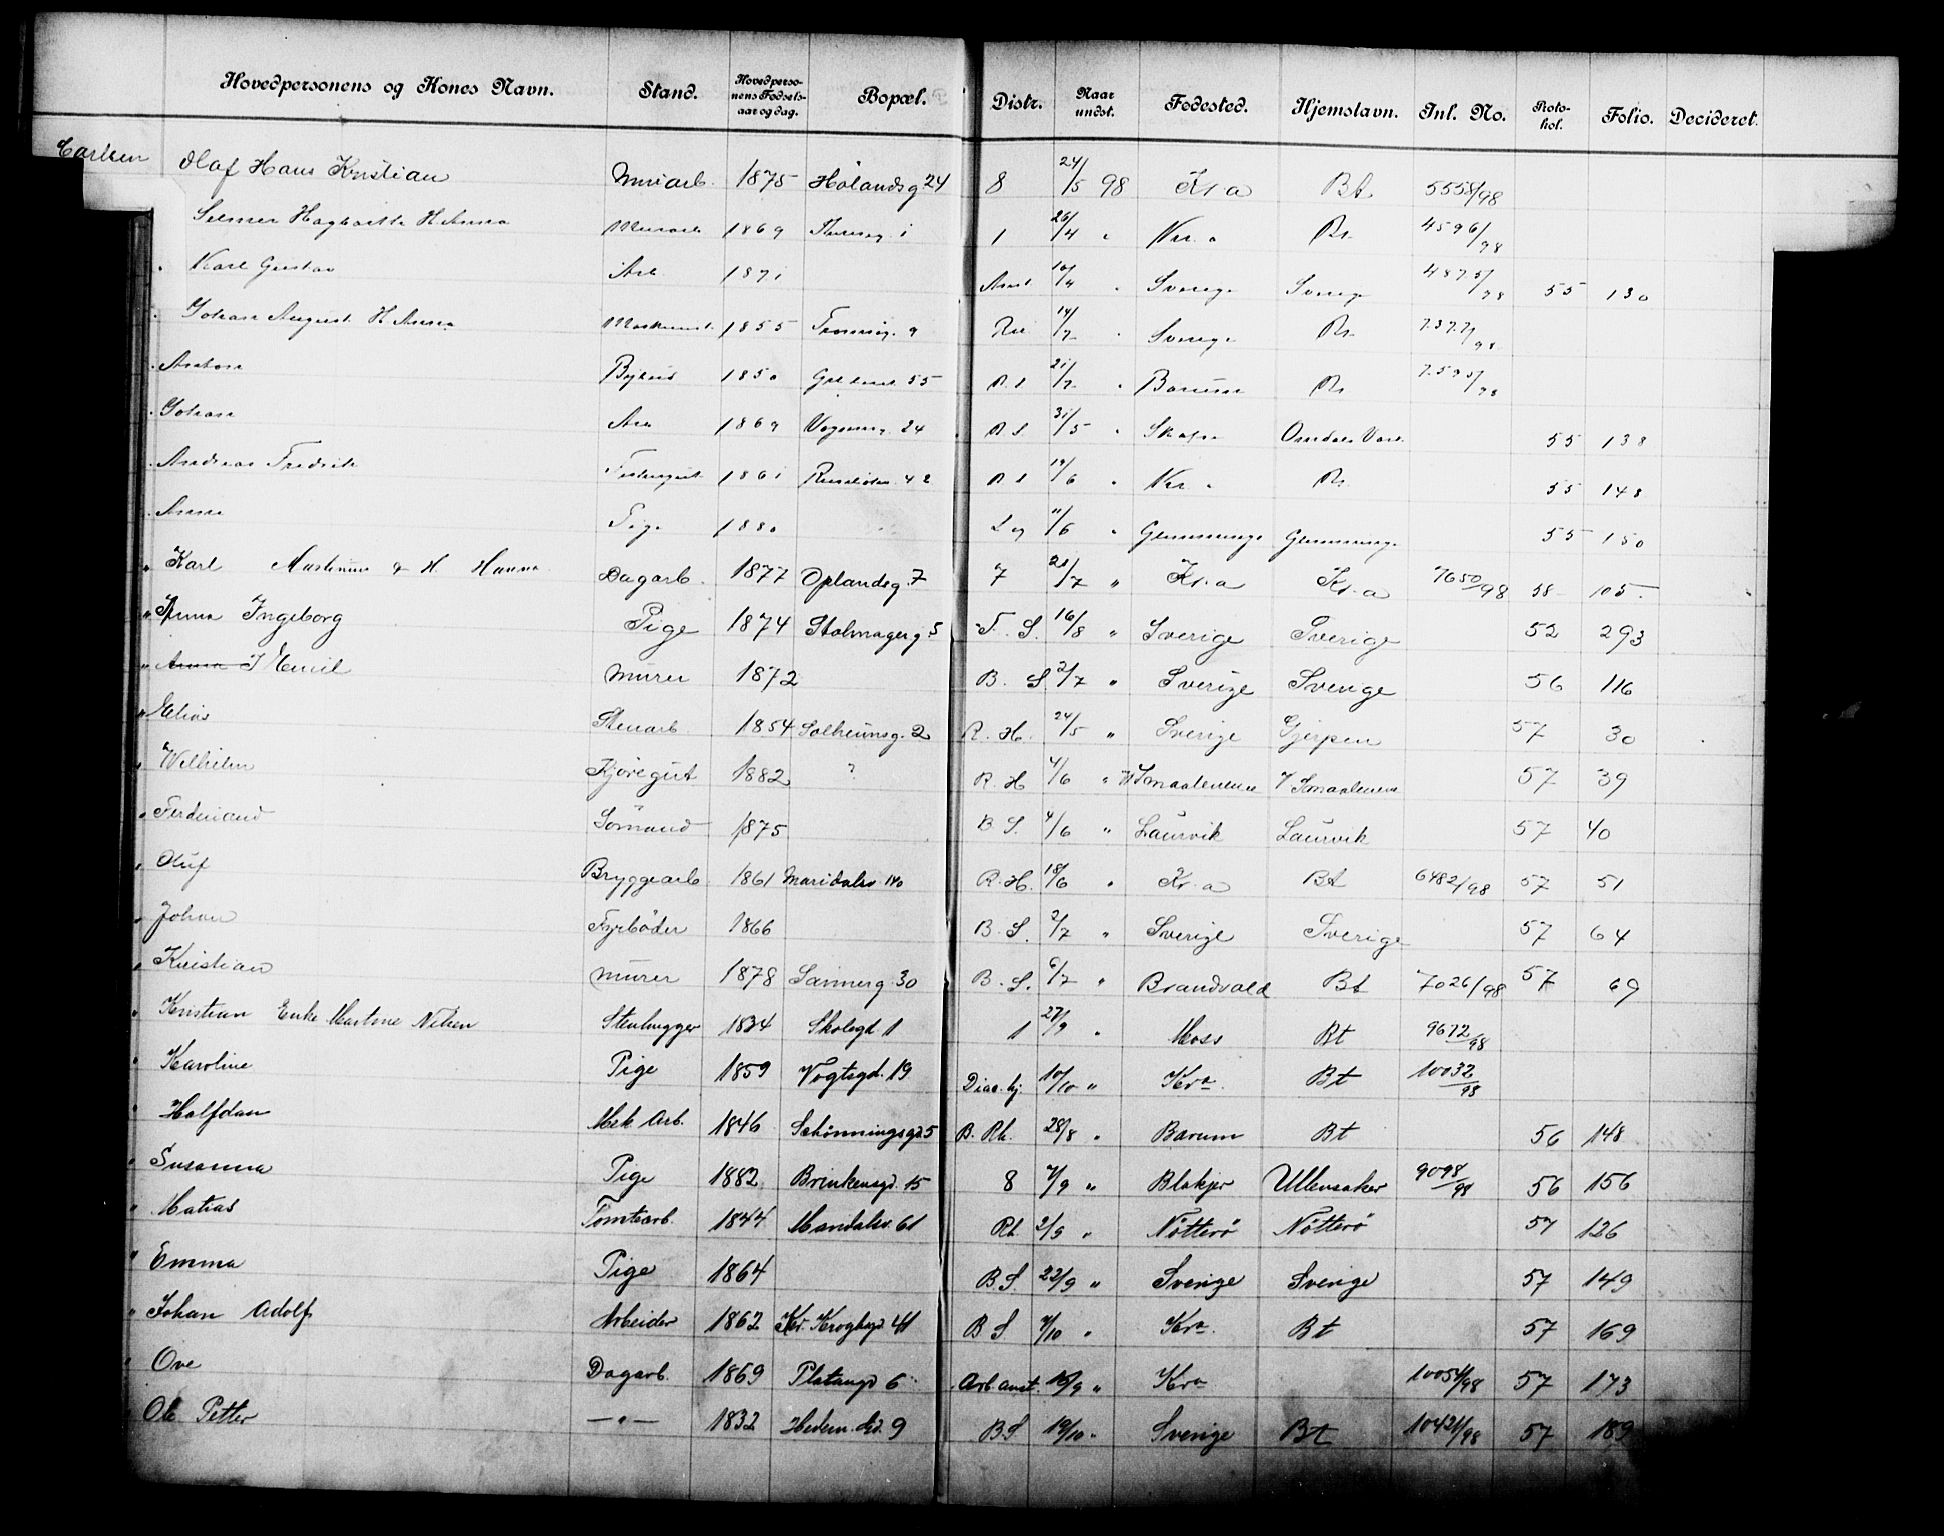 Hovedpersonens og Kones Navn. Stand. Hovedpersonens Fødselsaar og dag. Bopæl. Distr. Naar undst. Fødested. Hjemstavn. Inl. No. Protokol. Folio. Decideret.
Carlsen Olaf Hans Kristian Murarb. 1875 Hølandsg 24 8 24/5 98 Kr.a Bt 5558/98
Selmer H. Anna Murarb 1869 1 26/4 " Kr.a Bt 4596/98
" Karl Gustav Arb. 1871 Sverige Sverige 4875/98 55 130
" Johan August H. Anna 1855 9 14/7 " Sverige Bt 7377/98
" Anton Bybud 1850 55 B.S 21/7 " Barum Bt 7595/98
" Johan Arb 1869 Vognmg. 24 B.S. 31/5 " 55 138
" Andreas Fredrik 1861 42 B.S 14/6 " Kr. a Bt 55 148
" Anna Pige 1880 11/6 " Glemminge Glemminge 55 150
" Karl Martinius & H. Hanna Dagarb. 1877 Oplandsg. 7 7 21/7 " Kr.a Kr.a 7650/98 58 105
" Anna Ingeborg Pige 1874 Stolmagerg. 5 F. S. 16/8 " Sverige Sverige 52 293
" Anna J Emil Murer 1872 B. S. 2/7 " Sverige Sverige 56 116
" Elias Stenarb. 1854 Solheimsg. 2 R. H. 24/5 " Sverige Gjerpen 57 30
" Wilhelm Kjøregut 1882 ? R. H 4/6 " V Smaalenene V Smaalenene 57 39
" Ferdinand Sømand 1875 B. S. 4/6 " Laurvik Laurvik 57 40
" Oluf Bryggearb. 1861 Maridalsv. 140 R. H. 18/6 " Kr. a Bt 6482/98 57 51
" Johan Fyrbøder 1866 B. S. 2/7 " Sverige Sverige 57 64
" Kristian Murer 1878 Sannerg. 30 B. S. 6/7 " Brandvold Bt 7026/98 57 69
" Kristian Enke Martine Nilsen Stenhugger 1834 Skolegd 1 1 27/9 " Moss Bt 9672/98
" Karoline Pige 1859 Vogtsgd. 19 Diac. hj. 10/10 " Kra. Bt 10032/98
" Halfdan Mek Arb. 1846 Schønningsgd. 5 B. Rh. 28/8 " Barum Bt 56 148
" Susanna Pige 1882 Brinkensgd. 15 8 7/9 " Blakjer Ullensaker 9098/98 56 156
" Matias Tomtearb. 1844 Maridalsv. 61 Rh. 2/9 " Nøtterø Nøtterø 57 126
" Emma Pige 1864 B S. 22/9 " Sverige Sverige 57 149
" Johan Adolf Arbeider 1862 Kr. Kroghsgd. 41 B S 7/10 " Kra. Bt 57 169
" Ove Dagarb. 1869 Platausgd 6 Arb. anst. 16/9 " Kra 10054/98 57 173
Ole Petter — " — 1832 Hedem. Gd. 9 B.S 19/10 " Sverige Bt 10421/98 57 189